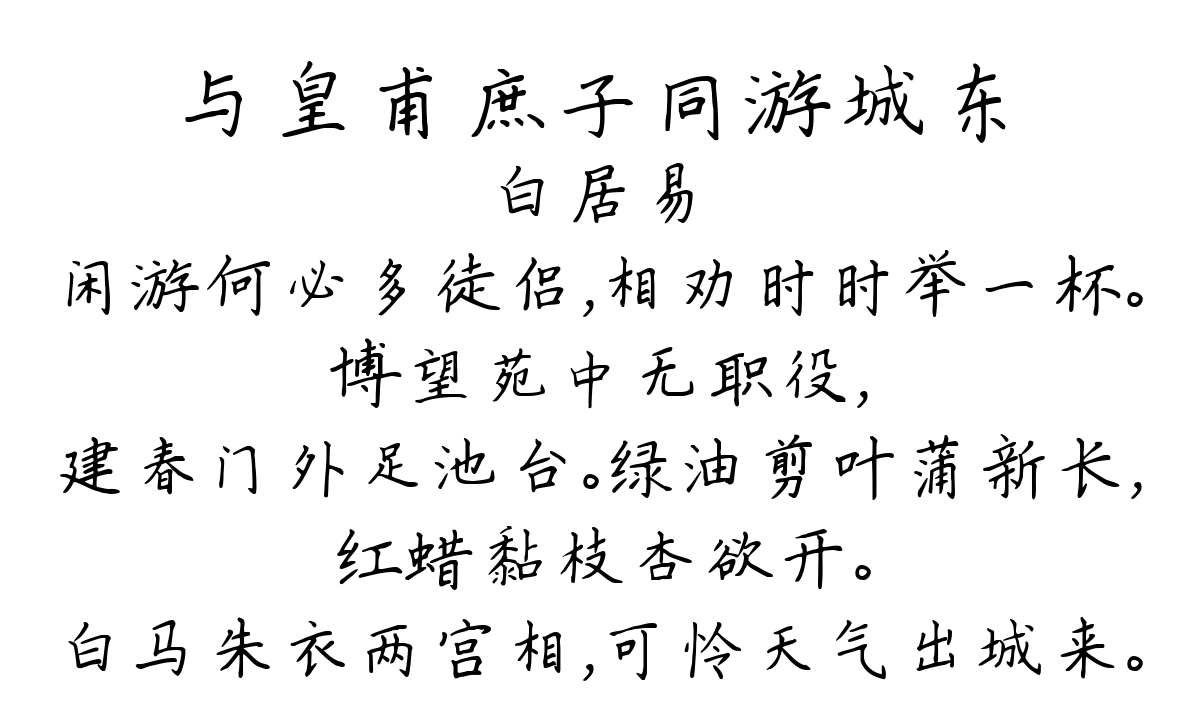 与皇甫庶子同游城东
白居易
闲游何必多徒侣,相劝时时举一杯。
博望苑中无职役,
建春门外足池台。绿油剪叶蒲新长,
红蜡黏枝杏欲开。
白马朱衣两宫相,可怜天气出城来。